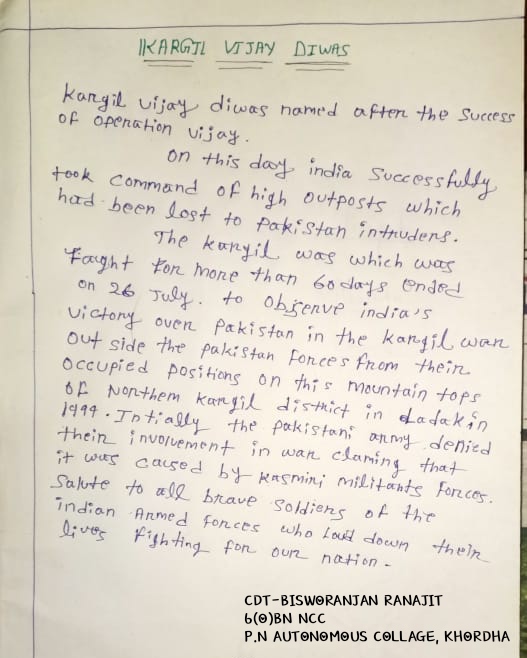 KARGIL VIJAY DIWAS
Kargil vijay diwas named after the Success
of operation vijay.
on this day india Successfully
took command of high outposts which
had been lost to pakistan intruders.
The kargil was which was
Faught for more than 60 days ended
on 26 July. to observe india's
victory over pakistan in the kargil war
out side the pakistan forces from their
occupied positions on this mountain tops
of Northern kargil district in Ladak in
1999. Intially the pakistani army denied
their involvement in war claming that
it was caused by kasmiri militants forces.
Salute to all brave soldiers of the
indian Armed forces who laid down their
lives fighting for our nation.
CDT-BISWORANJAN RANAJIT
6(O)BN NCC
P.N AUTONOMOUS COLLAGE, KHORDHA